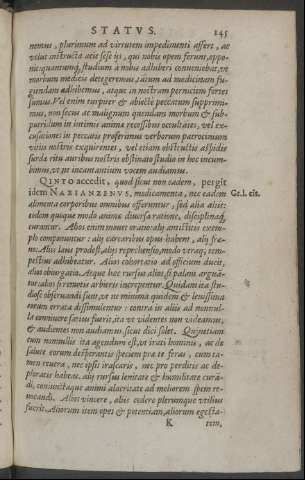 STATVS. 145
nemus, plurimum ad virtutem impedimenti affert, ac
velut instructa acie sese ijs, qui nobis opem ferunt, oppo-
nit: quantumq́; studium à nobis adhiberi conueniebat, vt
morbum medicis detegeremus, tātum ad medicinam fu-
gandam adhibemus, atque in nostram perniciem fortes
sumus. Vel enim turpiter & abiectè peccatum supprimi-
mus, non secus ac malignum quendam morbum & sub-
putridum in intimis animæ recessibus occultātes, vel ex-
cusationes in peccatis proferimus verborum patrocinium
vitio nostro exquirentes, vel etiam obstructis aspidis
surdæ ritu auribus nostris obstinato studio in hoc incum-
bimus, ne incantantium vocem audiamus.
QVINTO accedit, quod sicut non eadem, pergit
idem NAZIANZENVS, medicamenta, nec eadem Cit. l. cit.
alimenta corporibus omnibus offeruntur, sed alia alijs:
eodem quoque modo animæ diuersa ratione, disciplinaq́;
curantur. Alios enim mouet oratio: alij amictiores exem-
plo componuntur: alij calcaribus opus habent, alij fre-
no: Alios laus prodest, alios reprehensio, modò vtraq́; tem-
pestiuè adhibeatur. Alios cohortatio ad officium ducit,
alios obiurgatio. Atque hæc rursus alios, si palam argua-
tur: alios si remotis arbitris increpentur. Quidam ita stu-
diosè obseruandi sunt, vt ne minima quidem & leuissima
eorum errata dissimulentur: contrà in alijs ad nonnul-
la conniuere satius fuerit, ita vt videntes non videamus,
& audientes non audiamus, sicut dici solet. Quinetiam
cum nonnullis ita agendum est, vt irati hominis, ac de
salute eorum desperantis speciem præ te feras, cum ta-
men reuera, nec ipsis irascaris, nec pro perditis ac de-
ploratis habeas. alij rursus lenitate & humilitate curā-
di, coniunctaque animi alacritate ad meliorem spem re-
uocandi. Alios vincere, alijs cedere plerumque vtilius
fuerit. Aliorum item opes & potentiam, aliorum egesta-
K tem,